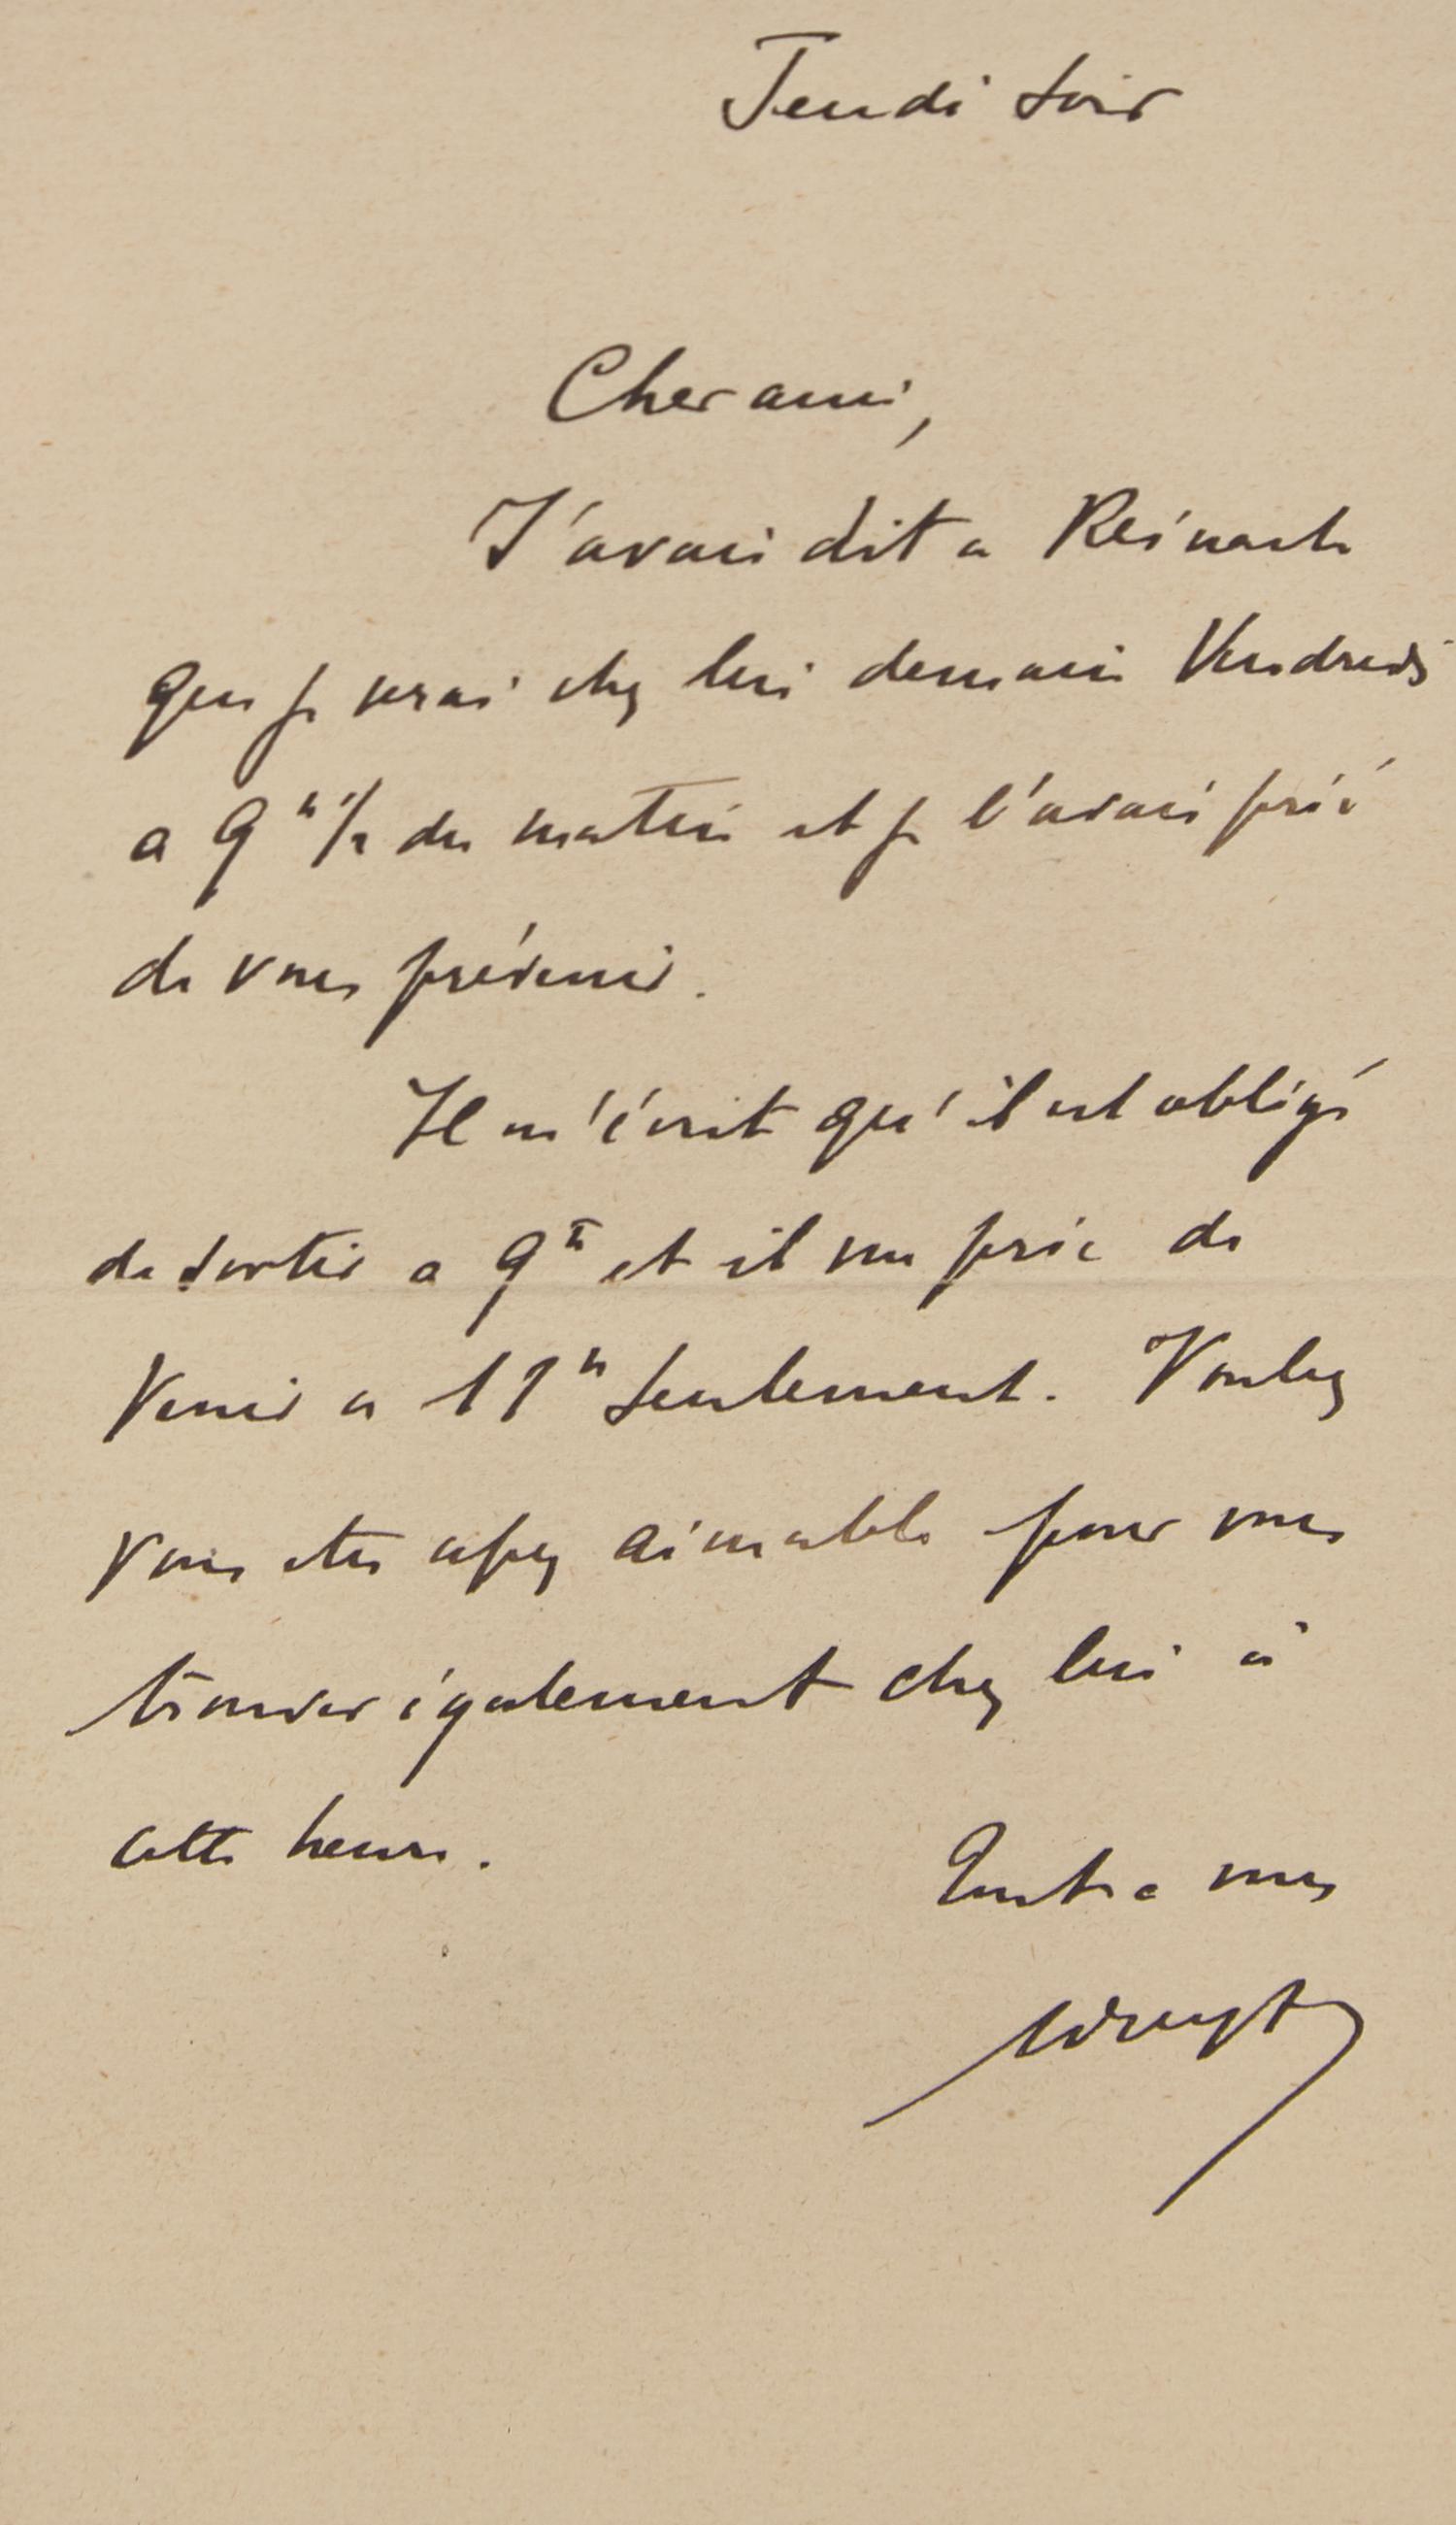 Jeudi soir
Cher ami,
J'avais dit a Reinach
que je serai chez lui demain Vendredi
a 9h 1/2 du matin et je l'avais prié
de vous prévenir.
Il m'écrit qu'il est obligé
de sortir a 9h et il me prie de
Venir a 11h seulement. Voulez
vous etre assez aimable pour vous
trouver également chez lui à
cette heure.
Tout a vous